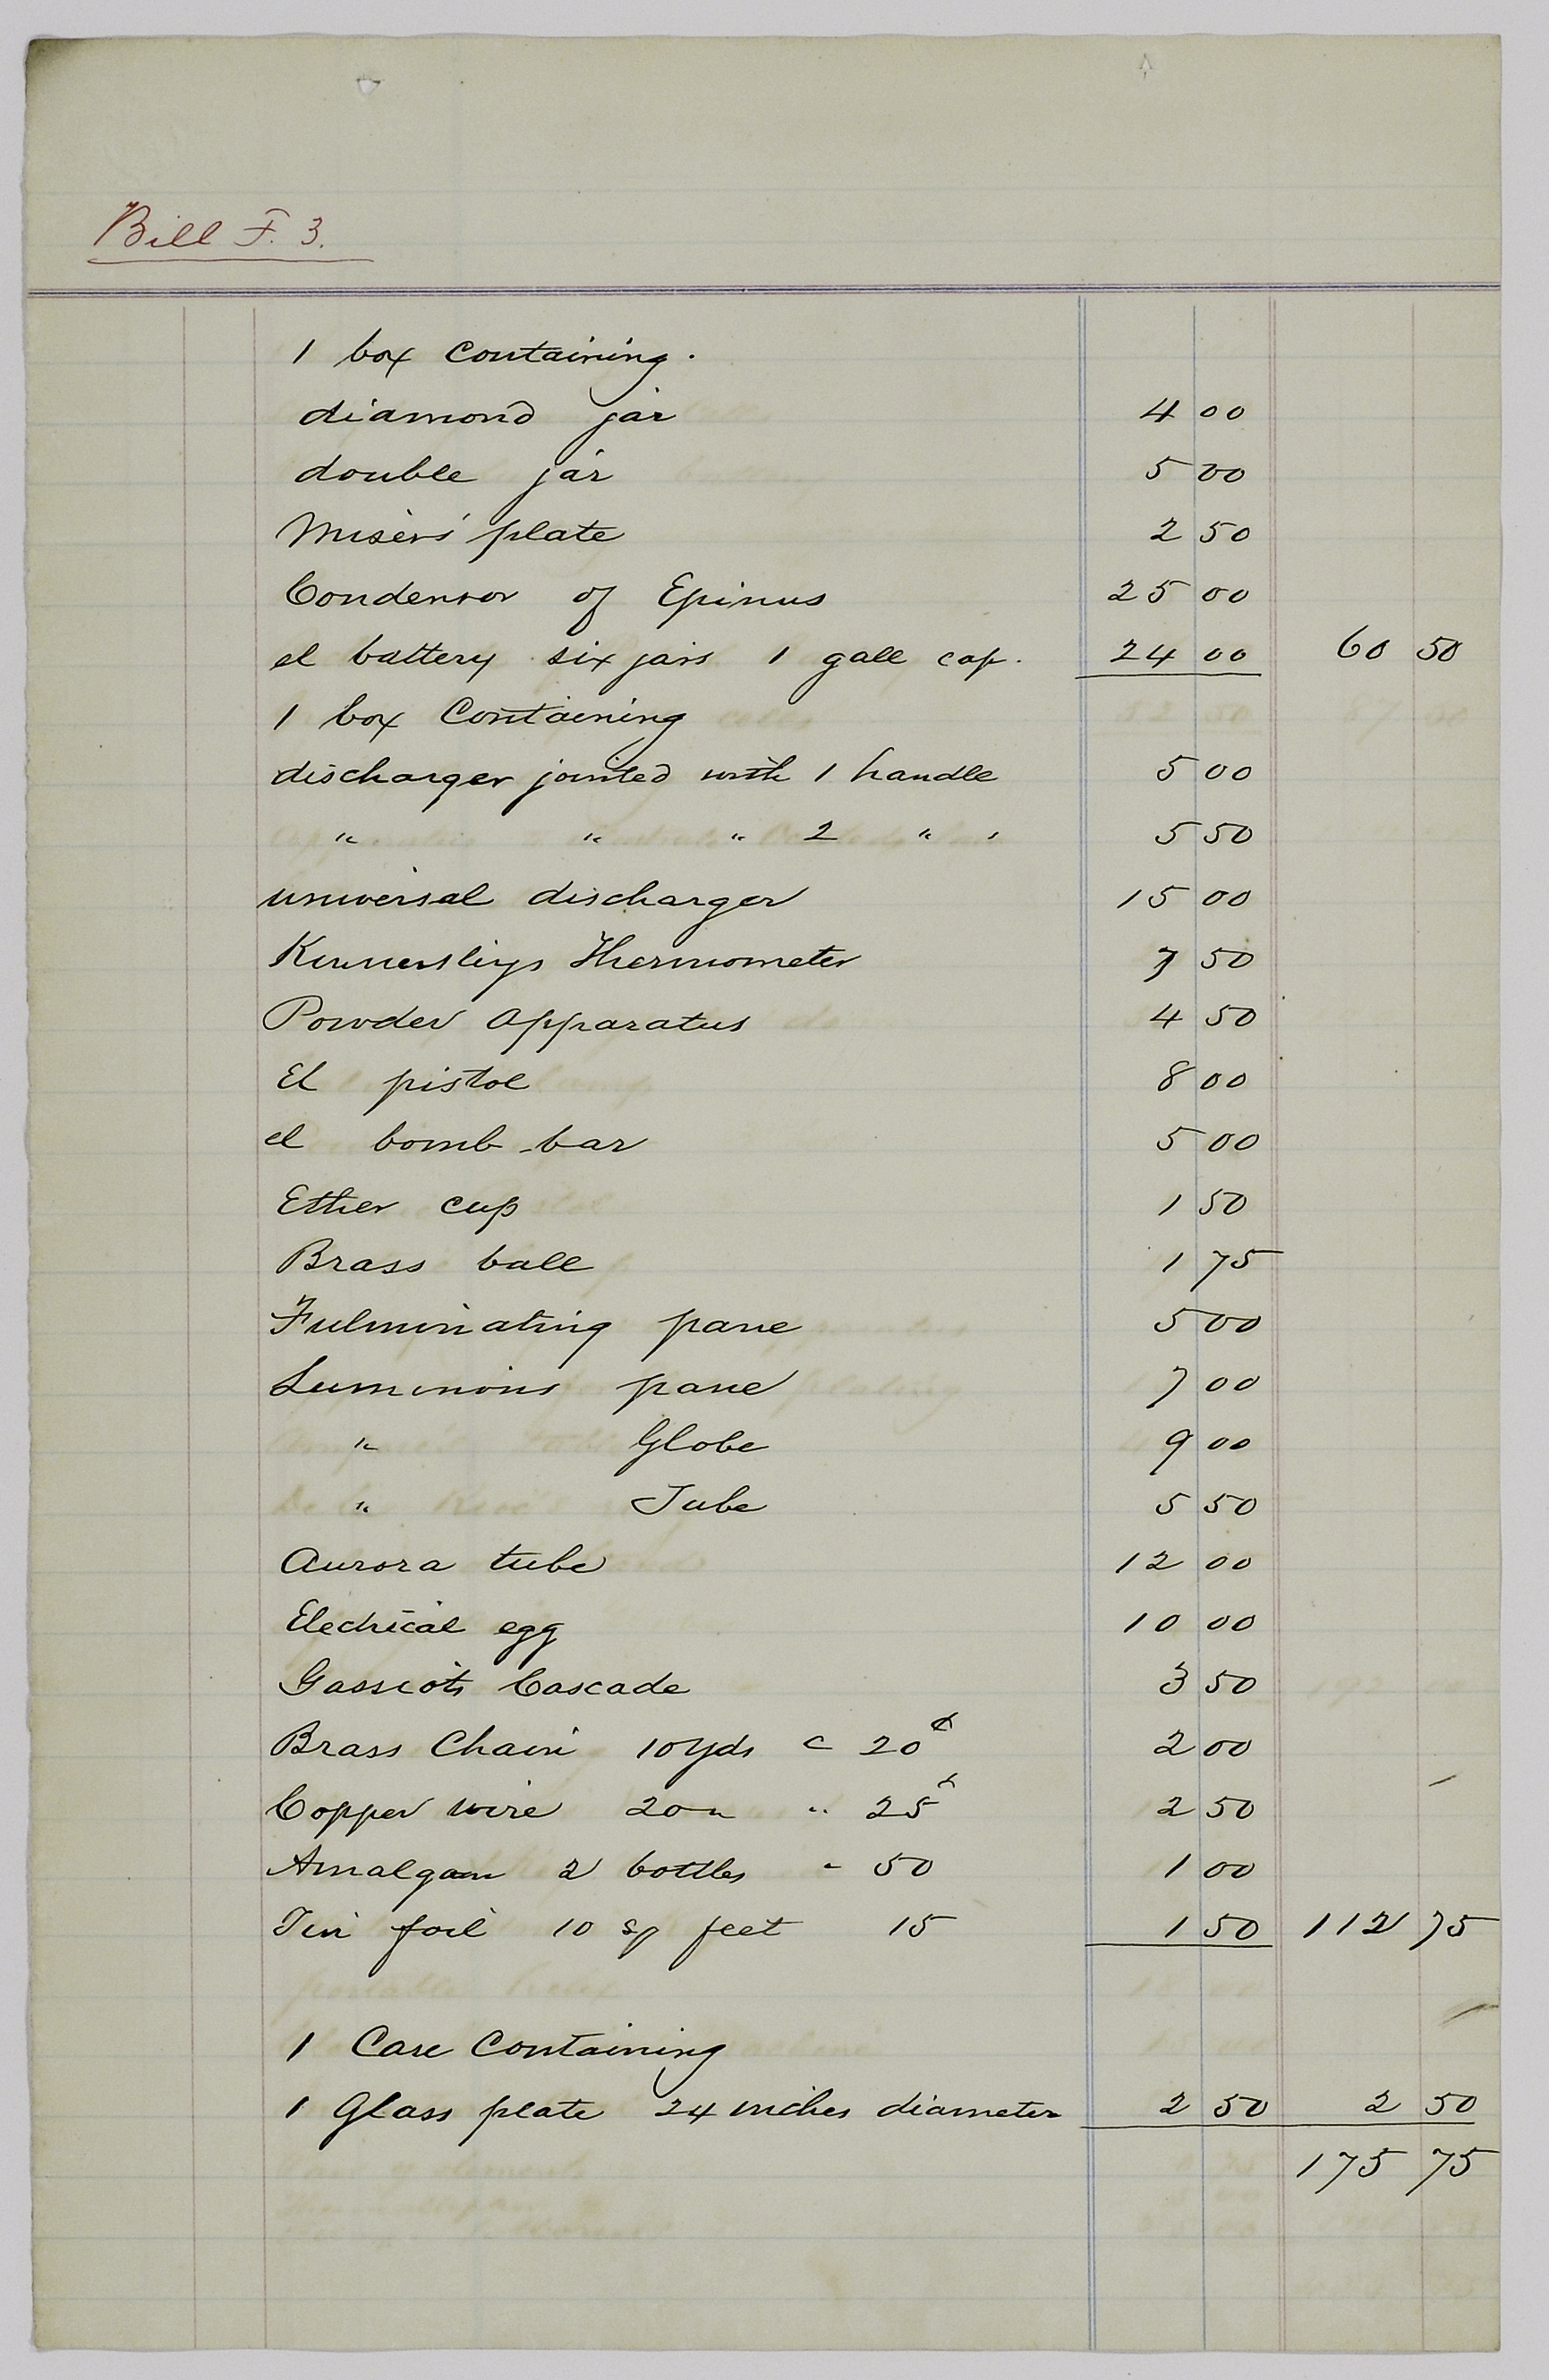 Bill F. 3.
1 box containing.
diamond jar 4 00
double jar 5 00
Misers' plate 2 50
Condensor of Epinus 25 00
el battery six jars 1 gall cap. 24 00 60 50
1 box Containing
discharger jointed with 1 handle 5 00
" " " 2 " " 5 50
universal discharger 15 00
Kinnersleys Thermometer 7 50
Powder apparatus 4 50
El pistol 8 00
el bomb-bar 5 00
Ether cup 1 50
Brass ball 1 75
Fulminating pane 5 00
Luminous pane 7 00
" Globe 9 00
" Tube 5 50
Aurora tube 12 00
Electrical egg 10 00
Gassiots Cascade 3 50
Brass Chain 10 yds c 20¢ 2 00
Copper wire 20 " " 25¢ 2 50
Amalgam 2 bottles " 50 1 00
Tin foil 10 sq feet 15 1 50 112 75
1 Case Containing
1 Glass plate 24 inches diameter 2 50 2 50
175 75